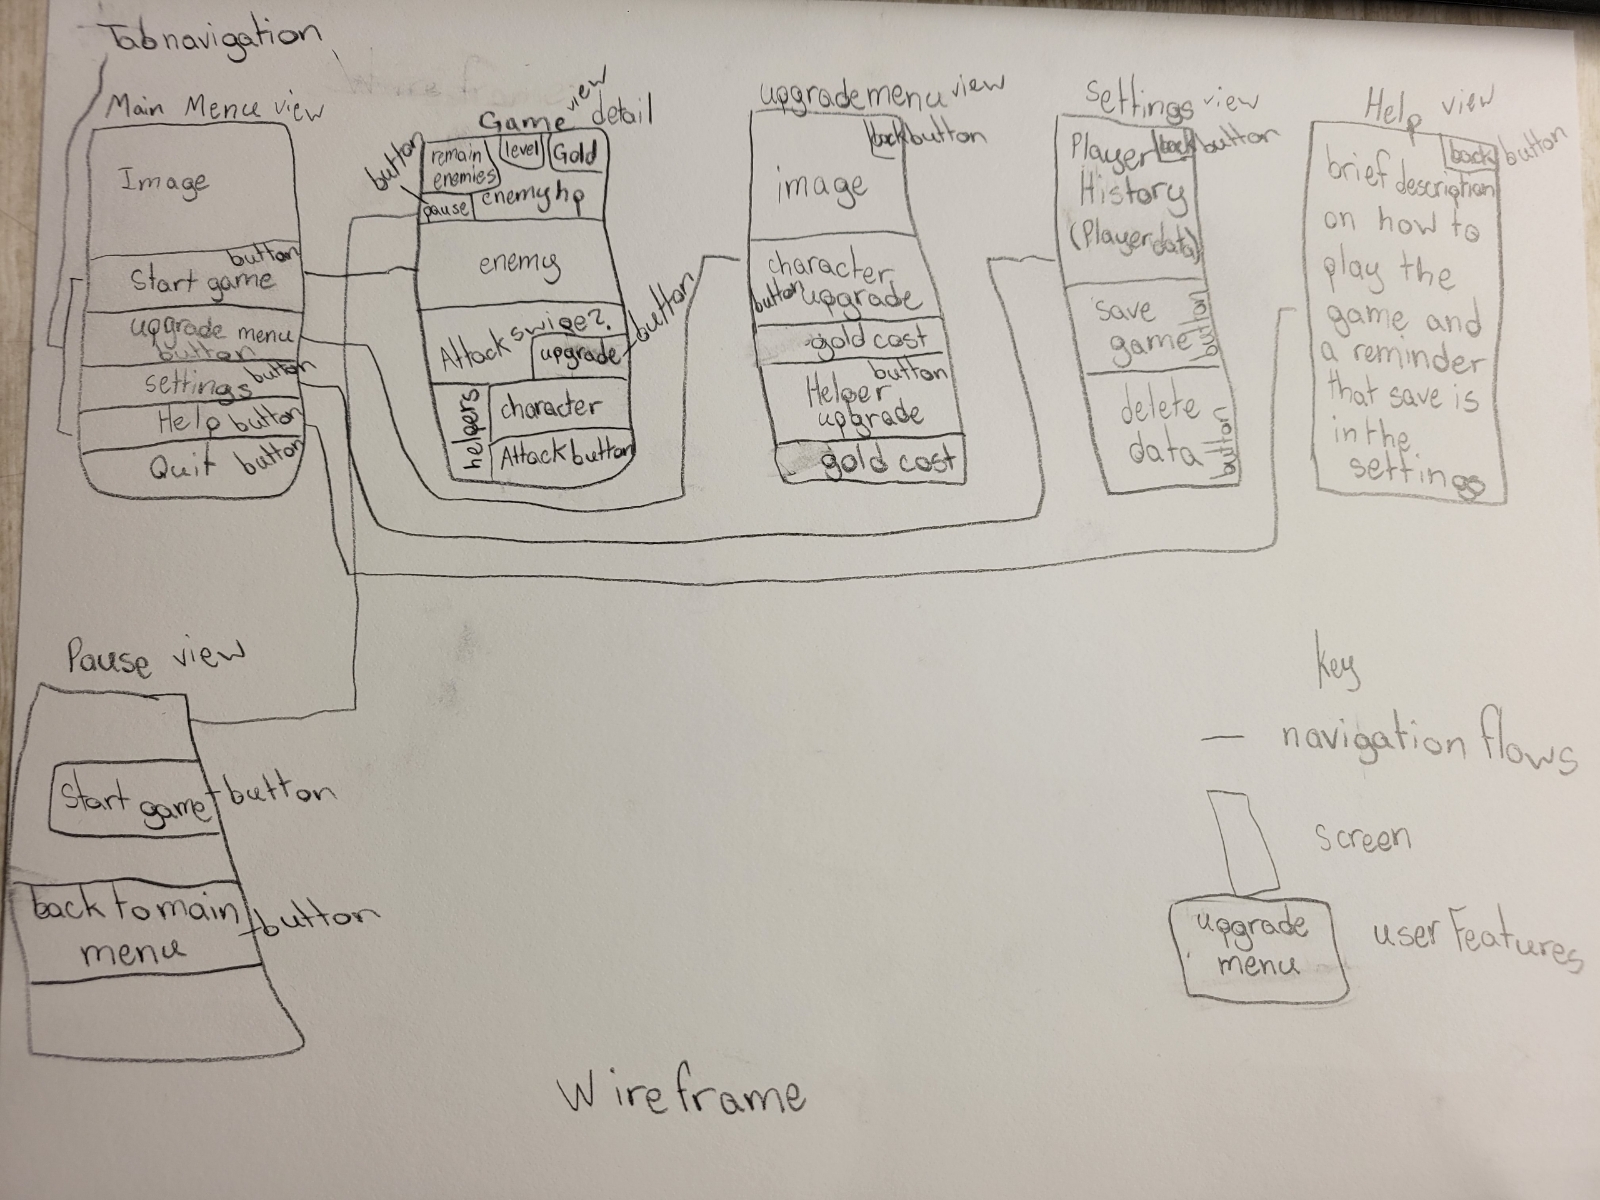 Tabnavigation
Main Menue view
Image
button
Start game
upgrade menu
button
settings button
Help button
Quit button
Game view detail
button
remain enemies
level
Gold
pause
enemy hp
enemy
Attack swipe?
upgrade
button
helpers
character
Attack button
upgrade menu view
back button
image
character
button upgrade
gold cost
button
Helper
upgrade
gold cost
Settings view
Player back button
History
(Player data)
save
game button
delete
data button
Help view
back button
brief description
on how to
play the
game and
a reminder
that save is
in the
settings
Pause view
Start game
button
back to main
menu
button
key
navigation flows
screen
upgrade
menu
user Features
Wireframe